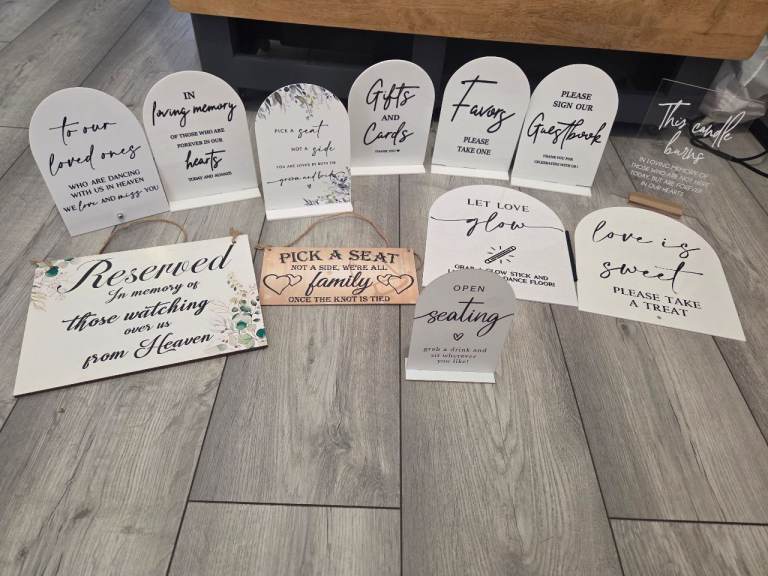 to our
loved ones
WHO ARE DANCING
WITH US IN HEAVEN
WE love AND miss YOU
IN
loving memory
OF THOSE WHO ARE
FOREVER IN OUR
hearts
TODAY AND ALWAYS
PICK A seat
NOT A side
YOU ARE LOVED BY BOTH THE
groom and bride
Gifts
AND
Cards
THANK YOU
Favors
PLEASE
TAKE ONE
PLEASE
SIGN OUR
Guestbook
THANK YOU FOR
CELEBRATING WITH US!
This candle
burns
IN LOVING MEMORY OF
THOSE WHO ARE NOT HERE
TODAY, BUT ARE FOREVER
IN OUR HEARTS
Reserved
In memory of
those watching
over us
from Heaven
PICK A SEAT
NOT A SIDE, WE'RE ALL
family
ONCE THE KNOT IS TIED
LET LOVE
glow
GRAB A GLOW STICK AND
DANCE FLOOR!
love is
sweet
PLEASE TAKE
A TREAT
OPEN
seating
grab a drink and
sit wherever
you like!